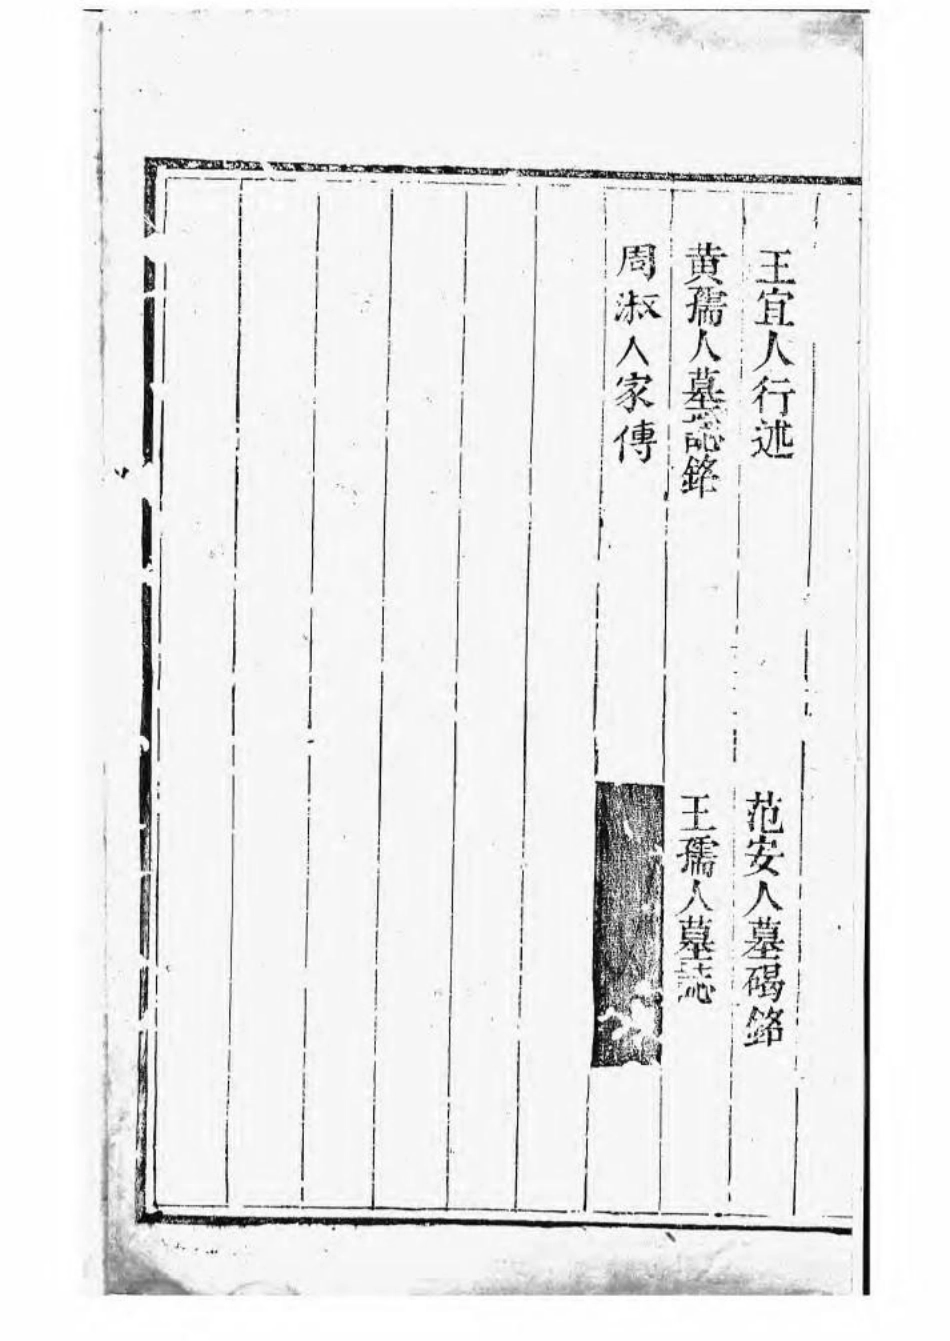 王宜人行述
范安人墓碣銘
黄孺人墓誌銘
王孺人墓誌
周淑人家傳